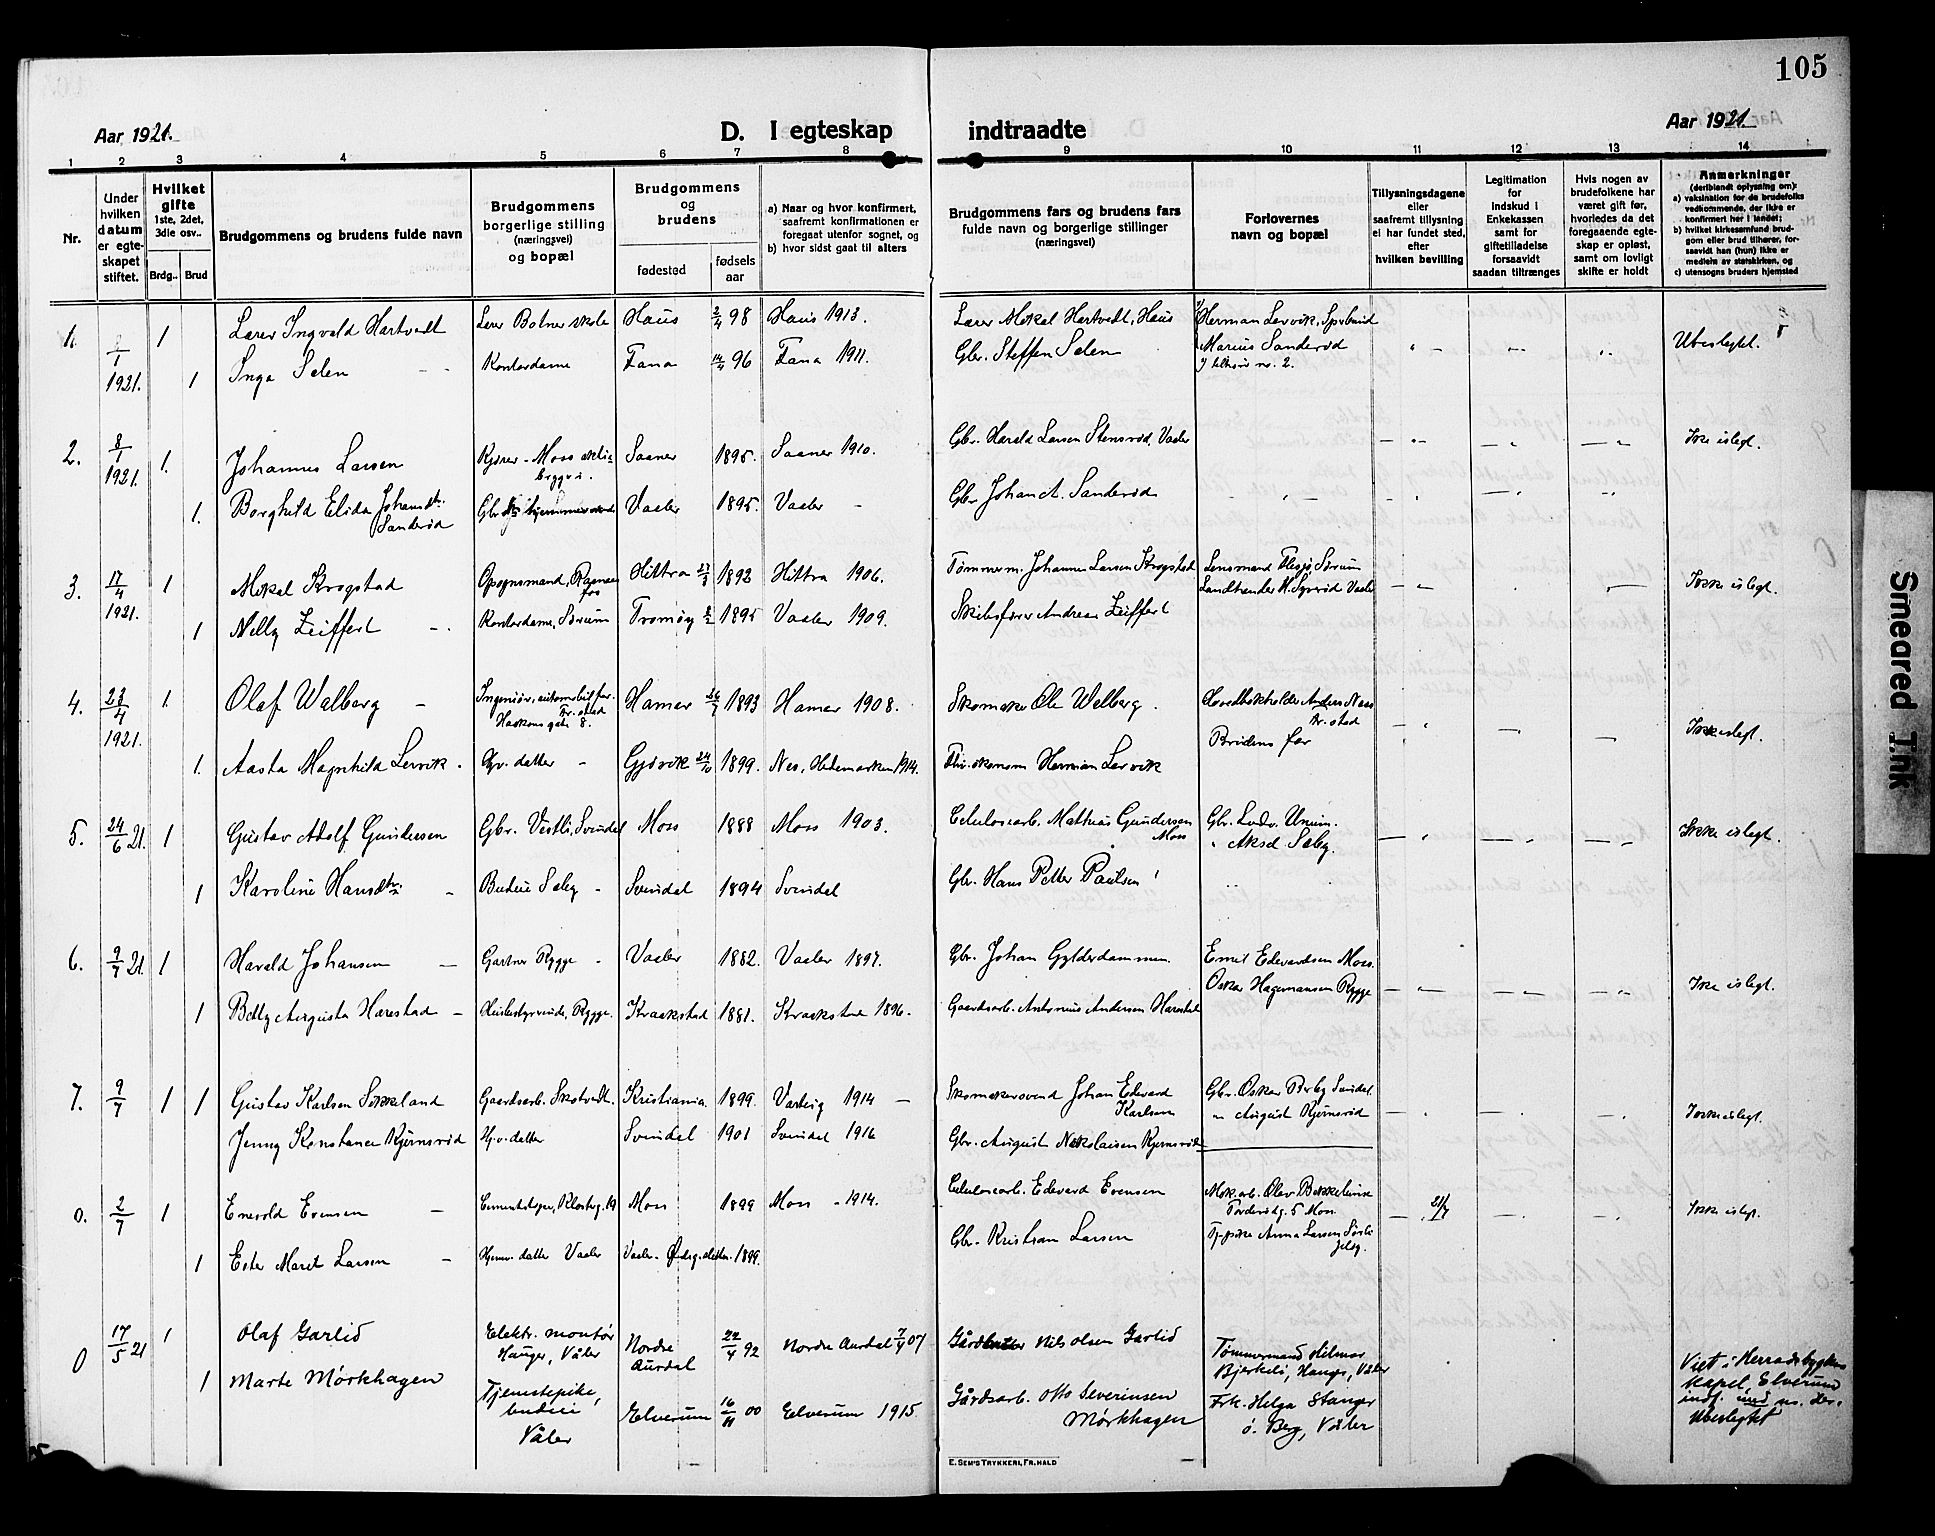 105
Aar 1921.
D. I egteskap indtraadte
Aar 1921.
1 2 3 4 5 6 7 8 9 10 11 12 13 14
Nr.
Under hvilken datum er egteskapet stiftet.
Hvilket gifte
1ste, 2det, 3die osv..
Brdg.. Brud
Brudgommens og brudens fulde navn
Brudgommens borgerlige stilling (næringsvei) og bopæl
Brudgommens og brudens
fødested
fødsels aar
a) Naar og hvor konfirmert, saafremt konfirmationen er foregaat utenfor sognet, og
b) hvor sidst gaat til alters
Brudgommens fars og brudens fars fulde navn og borgerlige stillinger (næringsvei)
Forlovernes navn og bopæl
Tillysningsdagene eller saafremt tillysning ei har fundet sted, efter hvilken bevilling
Legitimation for indskud i Enkekassen samt for giftetilladelse forsaavidt saadan tiltrænges
Hvis nogen av brudefolkene har været gift før, hvorledes da det foregaaende egteskap er opløst, samt om lovligt skifte er holdt
Anmerkninger
(deriblandt oplysning om):
a) vaksination for de brudefolks vedkommende, der ikke er konfirmert her i landet;
b) hvilket kirkesamfund brudgom eller brud tilhører, forsaavidt han (hun) ikke er medlem av statskirken, og
c) utensogns bruders hjemsted
1. 1 Lærer Ingvald Hartvedt Lærer Botner skole Haus 2/4 98 Haus 1913. Lærer Mikal Hartvedt, Haus Herman Lervik, Spydund Ubeslegtet.
1921. 1 Inga Selen Kontordame Fana 14/4 96 Fana 1911. Gbr. Steffen Selen Marius Sanderød
2. 8/1 1921. 1. Johannes Larsen Kjører - Moss aktiebryggeri. Saaner 1895. Saaner 1910. Gbr. Harald Larsen Stensrød, Vaaler Ikke islegt.
1. Borghild Elida Johansdtr. Sanderød Vaaler 1895. Vaaler - Gbr. Johan A. Sanderød
3. 17/4 1921. 1 Mikal Krogstad Opsynsmand, Hittra 27/3 1892 Hittra 1906. Tømmerm. Johannes Larsen Krogstad Lensmand Flesjø Sørum Ikke islegt.
1 Nelly Zeiffert Kontordame, Sørum Tromøy 1895 Vaaler 1909. Skibsfører Andreas Zeiffert Landhandler H. Syverød Vaaler
4. 23/4 1921. 1. Olaf Walberg Ingeniør, automobilfor. Fr.stad Haakonsgate 8. Hamar 26/7 1893 Hamar 1908. Skomaker Ole Walberg. Hovedbokholder Anders Moss Fr.stad Ikke islegt.
1. Aasta Magnhild Lervik. Gjv. datter Gjøvik 24/10 1899. Nes, Hedemarken 1914. Herman Lervik Brudens far
5. 24/6 21. 1 Gustav Adolf Gundersen Gbr. Vestli, Svindal Moss 1888 Moss 1903. Celulosearb. Mathias Gundersen Moss Gbr. Ludv. Unum. Ikke islegt.
1 Karoline Hansdtr. Budeie Sæby Svindal 1894 Svindal Gbr. Hans Petter Paulsen " Aksel Sæby.
6. 9/7 21. 1 Harald Johansen Gartner Rygge Vaaler 1882. Vaaler 1897. Gbr. Johan Gylderdammen. Emil Edvardsen Moss. Ikke islegt.
1 Betty Augusta Harestad Husbestyrerinde, Rygge. Kraakstad 1881. Kraakstad 1896. Gaardsarb. Antonius Andersen Harestad Oskar Hagemansen Rygge
7. 9/7 1 1 Gustav Karlsen Sikkeland Gaardsarb. Skotvedt. Kristiania. 1899. Varteig 1914 Skomakersvend Johan Edvard Karlsen Gbr. Oskar Berby Svindal Ikke islegt.
Jenny Konstanse Kjernsrød Hj.v. datter Svindal 1901 Svindal 1916 Gbr. August Nikolaisen Kjernsrød " August Kjernsrød
0. 2/7 1 Enevold Evensen Cementstøper, Klosterg. 19 Moss 1899 Moss - 1914. Celulosearb. Edvard Evensen Mek.arb. Olav Bekkelund Tordenskj.g. 5 Moss. 21/7 Ikke islegt.
1 Ester Marit Larsen Hjemv. datter Vaaler Vaaler 1899. Gbr. Kristian Larsen Tj.pike Anna Larsen
0 17/5 21 1 Olaf Garlid Elektr. montør Hauger, Våler Nordre Aurdal 22/4 92 Nordre Aurdal 7/4 07 Nils Olsen Garlid Tømmermand Hilmar Bjerkeli, Hauger, Våler
1 Marte Mørkhagen Tjenestepike, budeie Våler Elverum 16/11 00 Elverum 1915. Gårdsarb. Otto Severinsen Mørkhagen Frk. Helga Stanger ø. Berg, Våler
Viet i Herradsbygdens kapel, Elverum
indf. uns ns. der.
Ubeslegtet
E. SEM'S TRYKKERI, FR.HALD
Smeared Ink